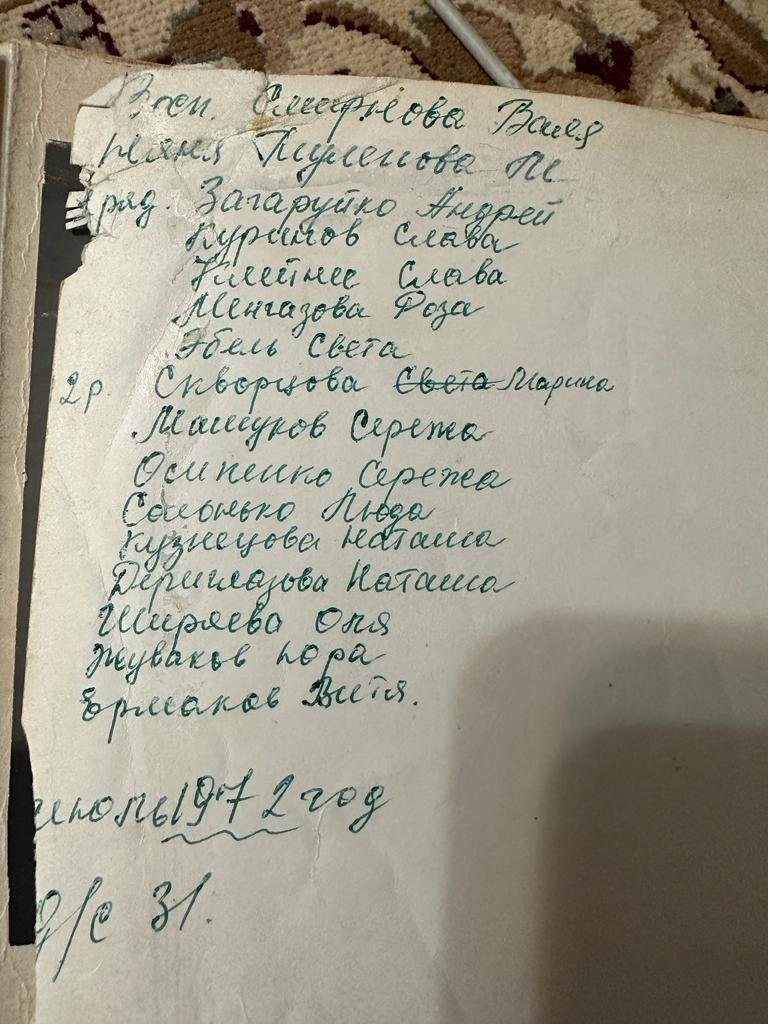 Восп. Смирнова Валя
Няня Туленова
ряд. Загаруйко Андрей
Куринов Слава
Слава
Менгазова Роза
Эбель Света
2р. Скворцова Света Марина
Машуков Сережа
Осипенко Сережа
Солонько Люда
Кузнецова Наташа
Дериглазова Наташа
Ширяева Оля
Жуваков Юра
Ермаков Витя.
июль 1972 год
д/с 31.